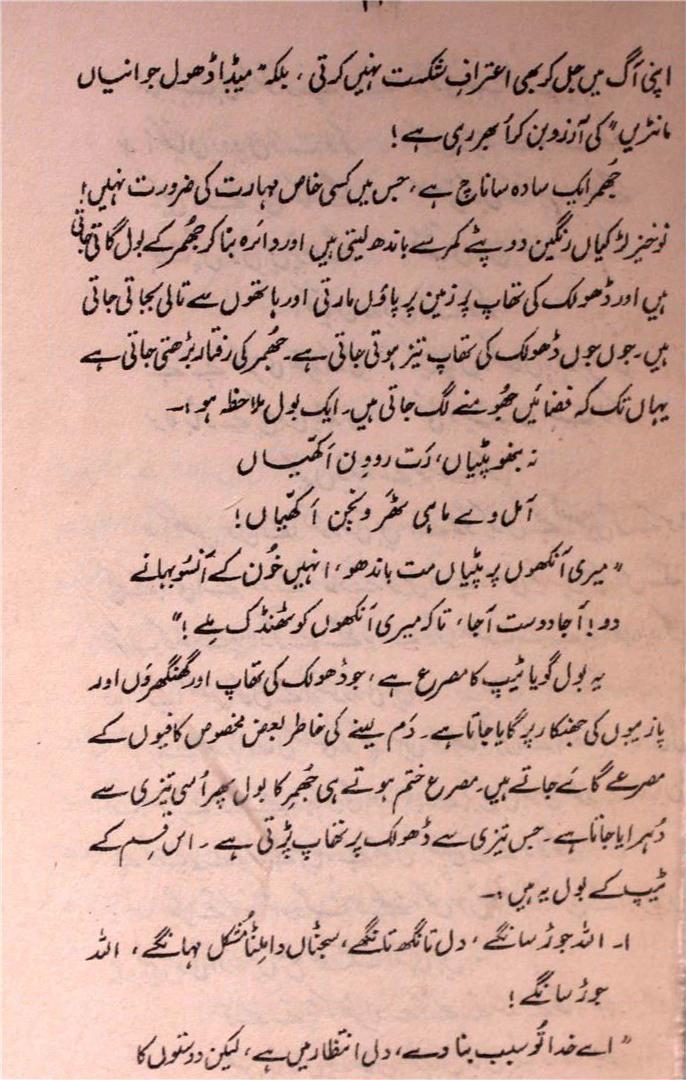 اپنی آگ میں جل کر بھی اعترافِ شکست نہیں کرتی، بلکہ "میڈا ڈھول جوانیاں
مانڑیں" کی آرزو بن کر اُبھر رہی ہے!
جُھمر ایک سادہ سا ناچ ہے، جس میں کسی خاص مہارت کی ضرورت نہیں!
نوخیز لڑکیاں رنگین دوپٹے کمر سے باندھ لیتی ہیں اور دائرہ بنا کر جُھمر کے بول گاتی جاتی
ہیں اور ڈھولک کی تھاپ پر زمین پر پاؤں مارتی اور ہاتھوں سے تالی بجاتی جاتی
ہیں۔ جوں جوں ڈھولک کی تھاپ تیز ہوتی جاتی ہے۔ جُھمر کی رفتار بڑھتی جاتی ہے
یہاں تک کہ فضائیں جُھومنے لگ جاتی ہیں۔ ایک بول ملاحظہ ہو:۔
نہ بنھو پٹیاں، رَت روون اَکھّیاں
آمل وے ماہی ٹھَر ونجن اَکھّیاں!
"میری آنکھوں پر پٹیاں مت باندھو، انہیں خُون کے آنسو بہانے
دو! آجا دوست آجا، تاکہ میری آنکھوں کو ٹھنڈک ملے!"
یہ بول گویا ٹیپ کا مصرع ہے، جو ڈھولک کی تھاپ اور گھنگھروں اور
پازیبوں کی جھنکار پر گایا جاتا ہے۔ دَم لینے کی خاطر بعض مخصوص کافیوں کے
مصرعے گائے جاتے ہیں۔ مصرع ختم ہوتے ہی جُھمر کا بول پھر اُسی تیزی سے
دُہرایا جاتا ہے۔ جس تیزی سے ڈھولک پر تھاپ پڑتی ہے۔ اس قسم کے
ٹیپ کے بول یہ ہیں:۔
۱۔ اللہ جوڑ سانگے، دل تانگھ تانگھے، سجناں دا ملنا مُشکل مہانگے، اللہ
جوڑ سانگے!
"اے خدا تُو سبب بنا دے، دل انتظار میں ہے، لیکن دوستوں کا